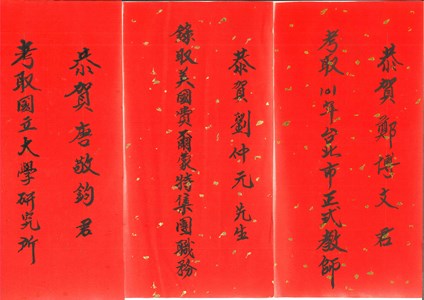 恭賀鄭博文君
考取101年台北市正式教師
恭賀劉仲元先生
錄取美國費爾蒙特集團職務
恭賀唐敬鈞君
考取國立大學研究所